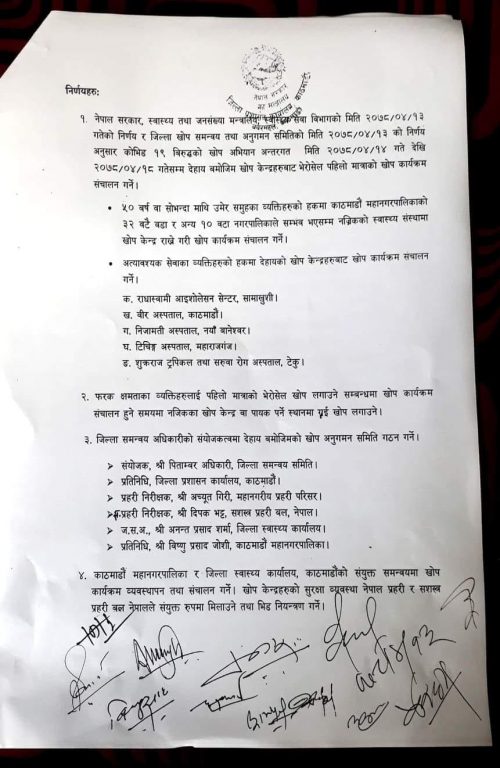 नेपाल सरकार
गृह मन्त्रालय
जिल्ला प्रशासन कार्यालय, काठमाडौं
निर्णयहरु:
१. नेपाल सरकार, स्वास्थ्य तथा जनसंख्या मन्त्रालय, स्वास्थ्य सेवा विभागको मिति २०७८/०४/१३
गतेको निर्णय र जिल्ला खोप समन्वय तथा अनुगमन समितिको मिति २०७८/०४/१३ को निर्णय
अनुसार कोभिड १९ विरुद्धको खोप अभियान अन्तरगत मिति २०७८/०४/१४ गते देखि
२०७८/०४/१८ गतेसम्म देहाय बमोजिम खोप केन्द्रहरुबाट भेरोसेल पहिलो मात्राको खोप कार्यक्रम
संचालन गर्ने।
• ५० बर्ष वा सोभन्दा माथि उमेर समुहका व्यक्तिहरुको हकमा काठमाडौं महानगरपालिकाको
३२ वटै वडा र अन्य १० वटा नगरपालिकाले सम्भव भएसम्म नजिकको स्वास्थ्य संस्थामा
खोप केन्द्र राख्ने गरी खोप कार्यक्रम संचालन गर्ने।
• अत्यावश्यक सेवाका व्यक्तिहरुको हकमा देहायको खोप केन्द्रहरुबाट खोप कार्यक्रम संचालन
गर्ने।
क. राधास्वामी आइशोलेसन सेन्टर, सामाखुशी।
ख. वीर अस्पताल, काठमाडौं।
ग. निजामती अस्पताल, नयाँ बानेश्वर।
घ. टिचिङ्ग अस्पताल, महाराजगंज।
ङ. शुक्रराज ट्रपिकल तथा सरुवा रोग अस्पताल, टेकु।
२. फरक क्षमताका व्यक्तिहरुलाई पहिलो मात्राको भेरोसेल खोप लगाउने सम्बन्धमा खोप कार्यक्रम
संचालन हुने समयमा नजिकका खोप केन्द्र वा पायक पर्ने स्थानमा गई खोप लगाउने।
३. जिल्ला समन्वय अधिकारीको संयोजकत्वमा देहाय बमोजिमको खोप अनुगमन समिति गठन गर्ने।
➢ संयोजक, श्री पिताम्बर अधिकारी, जिल्ला समन्वय समिति।
➢ प्रतिनिधि, जिल्ला प्रशासन कार्यालय, काठमाडौं।
➢ प्रहरी निरीक्षक, श्री अच्यूत गिरी, महानगरीय प्रहरी परिसर।
➢ प्रहरी निरीक्षक, श्री दिपक भट्ट, सशस्त्र प्रहरी बल, नेपाल।
➢ ज.स.अ., श्री अनन्त प्रसाद शर्मा, जिल्ला स्वास्थ्य कार्यालय।
➢ प्रतिनिधि, श्री विष्णु प्रसाद जोशी, काठमाडौं महानगरपालिका।
४. काठमाडौं महानगरपालिका र जिल्ला स्वास्थ्य कार्यालय, काठमाडौंको संयुक्त समन्वयमा खोप
कार्यक्रम व्यवस्थापन तथा संचालन गर्ने। खोप केन्द्रहरुको सुरक्षा व्यवस्था नेपाल प्रहरी र सशस्त्र
प्रहरी बल नेपालले संयुक्त रुपमा मिलाउने तथा भिड नियन्त्रण गर्ने।